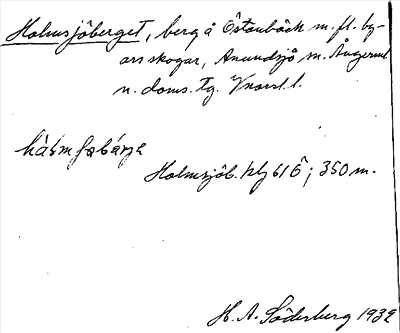 Holmsjöberget, berg å Östanbäck m. fl. by-
ars skogar, Anundsjö sn. Ångerml.
n. doms. tg. Vnorrl. l.
Holmsjöb. hlj 61 Ö; 350 m.
H. A. Söderberg 1932